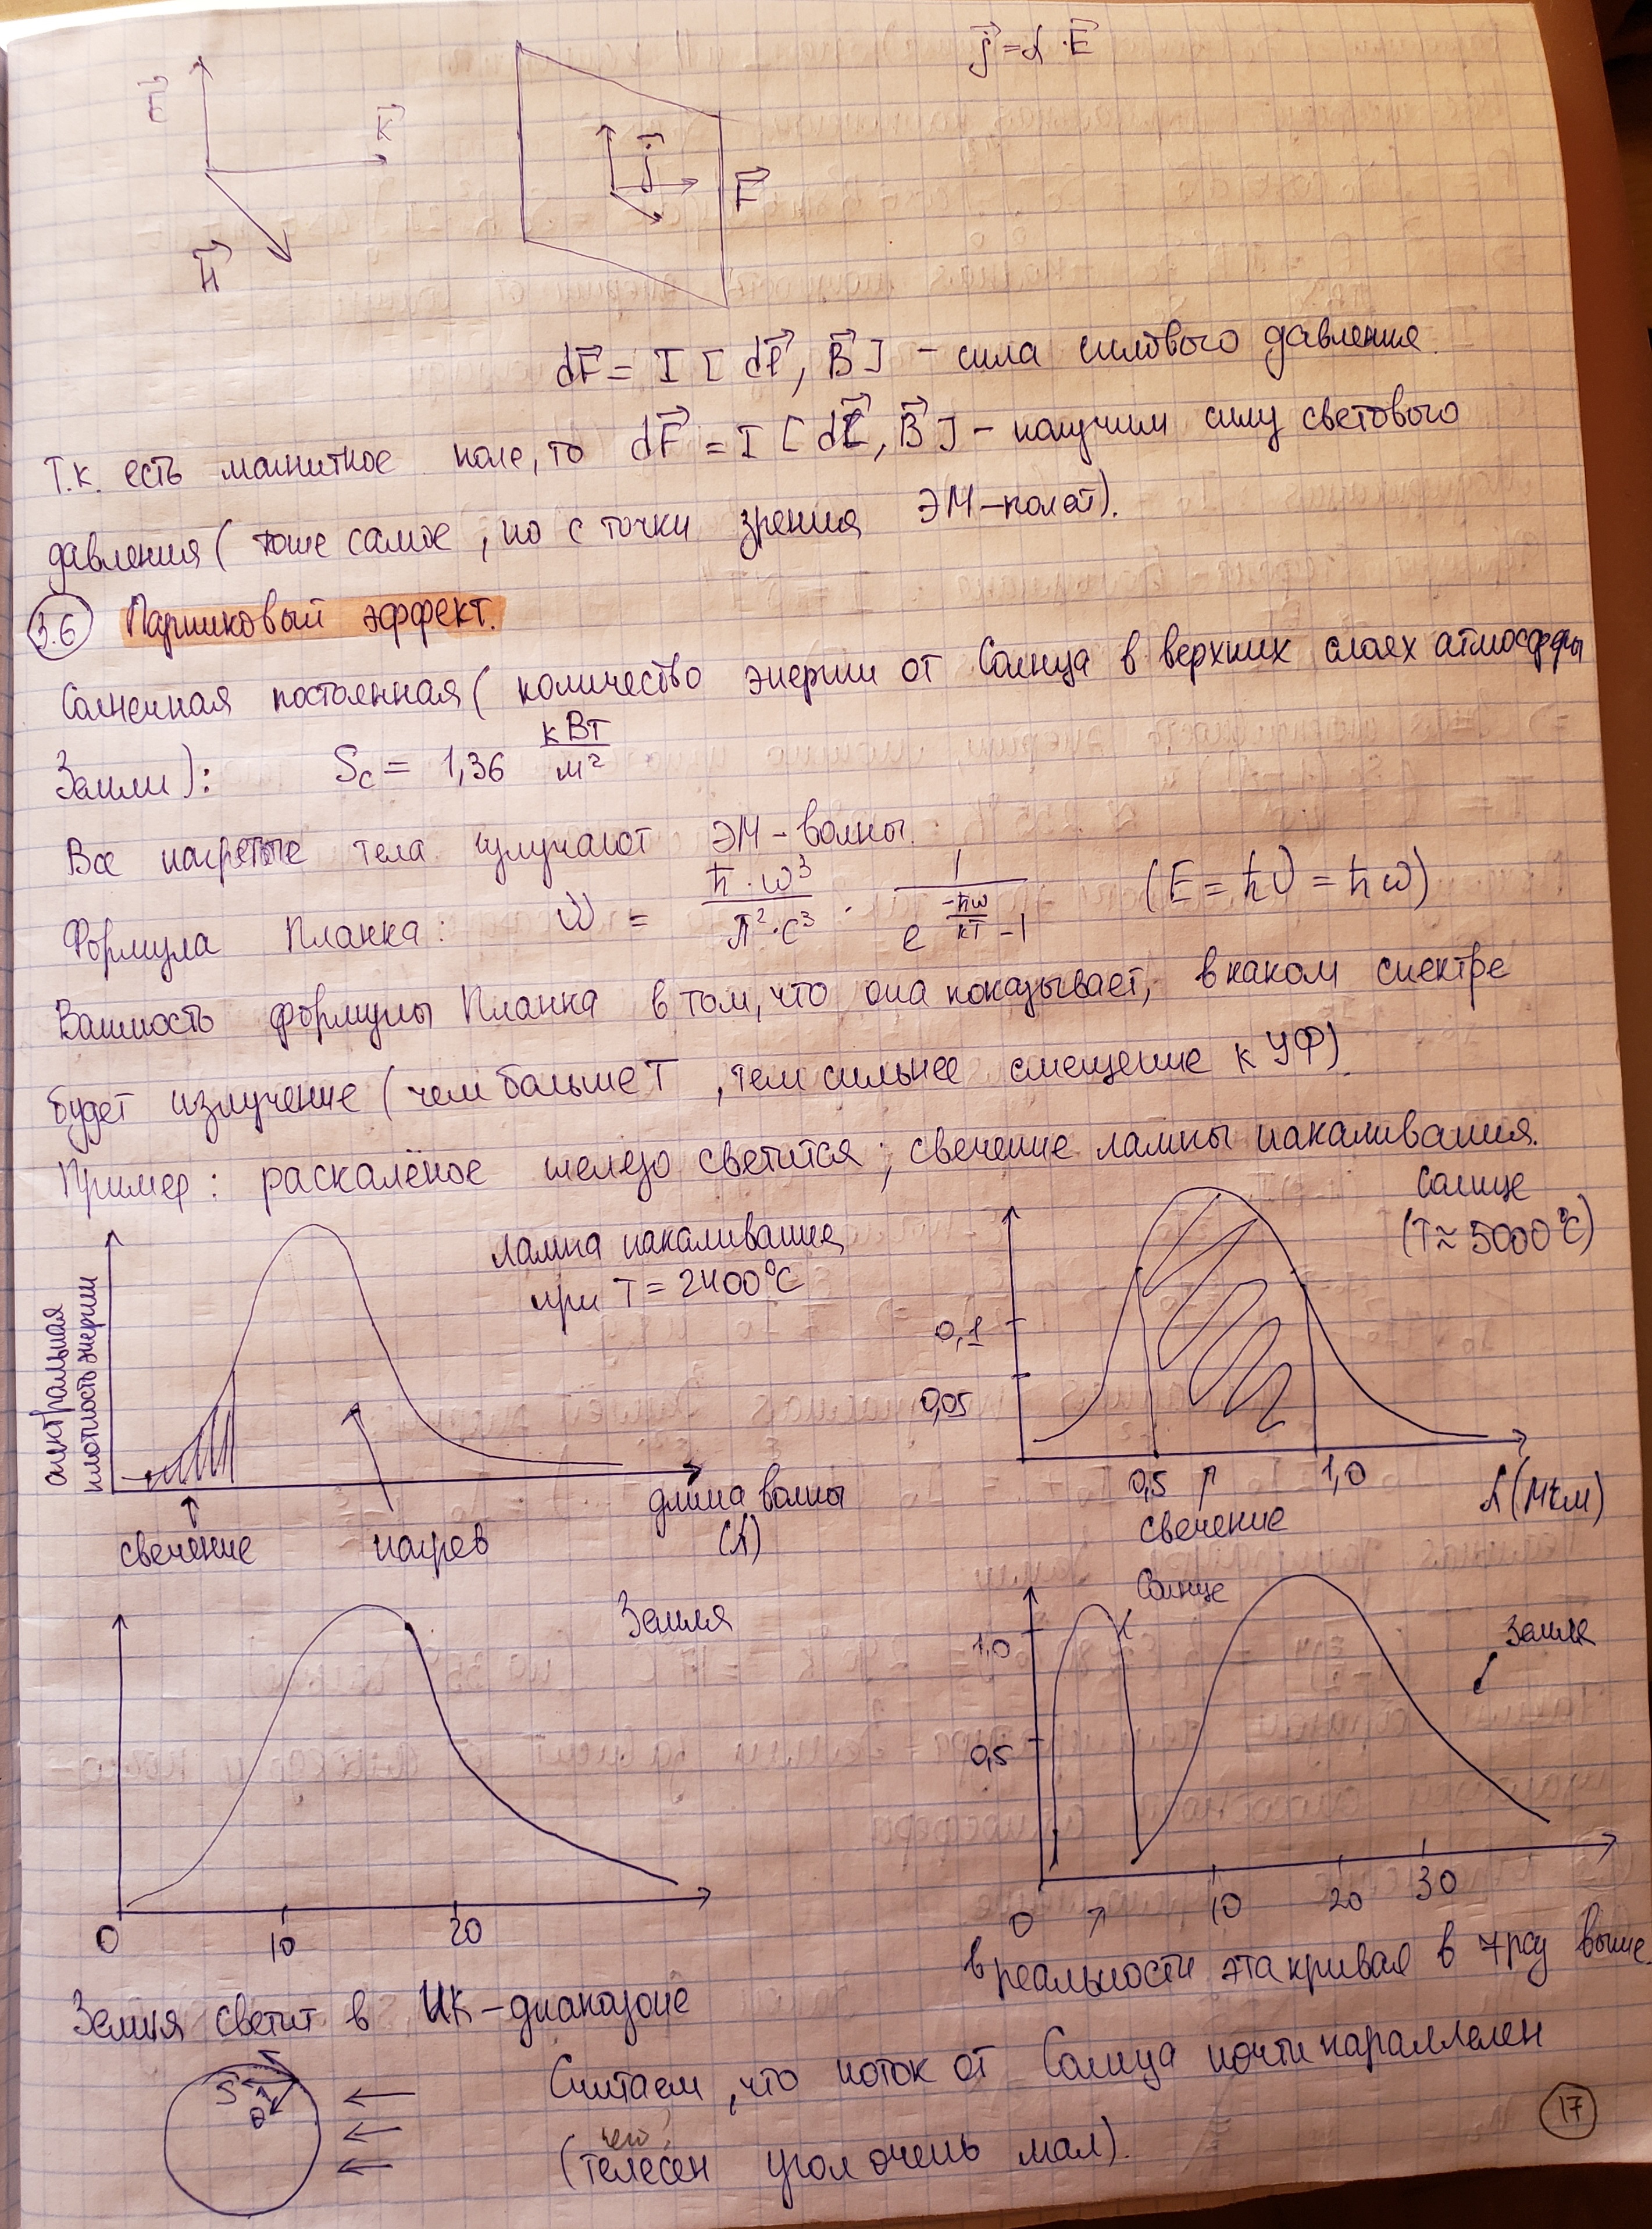 j⃗ = λ · E⃗
E⃗
K⃗
H⃗
j⃗
F⃗
dF⃗ = I [ dℓ⃗, B⃗ ] – сила силового давления.
Т.к. есть магнитное поле, то dF⃗ = I [ dL⃗, B⃗ ] – получим силу светового
давления ( тоже самое, но с точки зрения ЭМ-полей).
3.6 Парниковый эффект.
Солнечная постоянная ( количество энергии от Солнца в верхних слоях атмосферы
Земли): Sc = 1,36 кВт/м²
Все нагретые тела излучают ЭМ-волны.
Формула Планка: W = ħ·ω³/π²·c³ · 1/e^(-ħω/kT) -1 (E = ħν = ħω)
Важность формулы Планка в том, что она показывает, в каком спектре
будет излучение (чем больше T, тем сильнее смещение к УФ).
Пример: раскалёное железо светится; свечение лампы накаливания.
спектральная
плотность энергии
лампа накаливания
при T = 2400°C
свечение
нагрев
длина волны
(λ)
Солнце
(T ≈ 5000°C)
0,1
0,05
0,5
1,0
λ (мкм)
свечение
Земля
0
10
20
Солнце
Земля
1,0
0,5
0
10
20
30
в реальности эта кривая в 7 раз выше.
Земля светит в ИК-диапазоне
S
θ
Считаем, что поток от Солнца почти параллелен
чего?
(телесен угол очень мал).
17